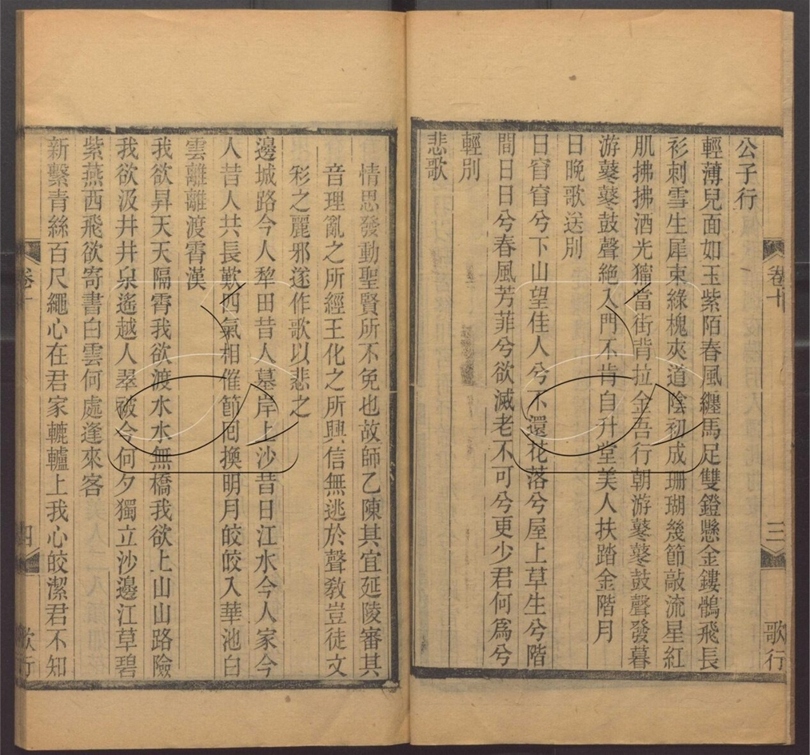 卷十
三
歌行
公子行
輕薄兒面如玉紫陌春風纏馬足雙鐙懸金鏤鶻飛長
衫刺雪生犀束綠槐夾道陰初成珊瑚幾節敵流星紅
肌拂拂酒光獰當街背拉金吾行朝游鼕鼕鼓聲發暮
游鼕鼕鼓聲絕入門不肯自升堂美人扶踏金階月
日晚歌送別
日窅窅兮下山望佳人兮不還花落兮屋上草生兮階
間日日兮春風芳菲兮欲滅老不可兮更少君何爲兮
輕別
悲歌
情思發動聖賢所不免也故師乙陳其宜延陵審其
音理亂之所經王化之所興信無逃於聲敎豈徒文
彩之麗邪遂作歌以悲之
邊城路今人犂田昔人墓岸上沙昔日江水今人家今
人昔人共長歎四氣相催節囘換明月皎皎入華池白
雲離離渡霄漢
我欲昇天天隔霄我欲渡水水無橋我欲上山山路險
我欲汲井井泉遙越人翠被今何夕獨立沙邊江草碧
紫燕西飛欲寄書白雲何處逢來客
新繫青絲百尺繩心在君家轆轤上我心皎潔君不知
卷十
四
歌行